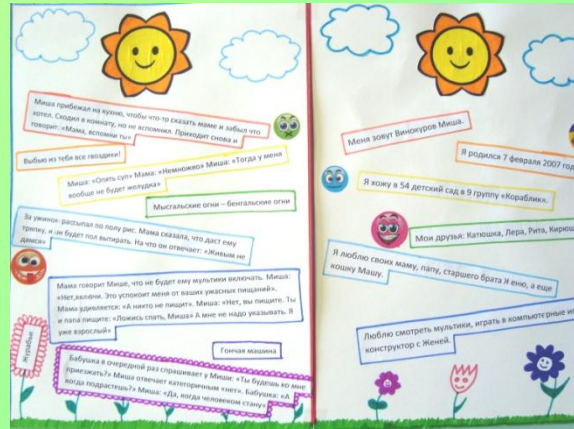 Миша прибежал на кухню, чтобы что-то сказать маме и забыл что
хотел. Сходил в комнату, но не вспомнил. Приходит снова и
говорит: «Мама, вспомни ты»
Выбью из тебя все гвоздики!
Миша: «Опять суп» Мама: «Немножко» Миша: «Тогда у меня
вообще не будет желудка»
Мысгальские огни – бенгальские огни
За ужином рассыпал по полу рис. Мама сказала, что даст ему
тряпку, и он будет пол вытирать. На что он отвечает: «Живым не
дамся»
Мама говорит Мише, что не будет ему мультики включать. Миша:
«Нет, включи. Это успокоит меня от ваших ужасных пищаний».
Мама удивляется: «А никто не пищит». Миша: «Нет, вы пищите. Ты
и папа пищите: «Ложись спать, Миша» А мне не надо указывать. Я
уже взрослый»
Гончая машина
Журабли
Бабушка в очередной раз спрашивает у Миши: «Ты будешь ко мне
приезжать?» Миша отвечает категоричным «нет». Бабушка: «А
когда подрастешь?» Миша: «Да, когда человеком стану»
Меня зовут Винокуров Миша.
Я родился 7 февраля 2007
Я хожу в 54 детский сад в 9 группу «Кораблик».
Мои друзья: Катюшка, Лера, Рита,
Я люблю своих маму, папу, старшего брата Женю, а еще
кошку Машу.
Люблю смотреть мультики, играть в компьютерные
конструктор с Женей.